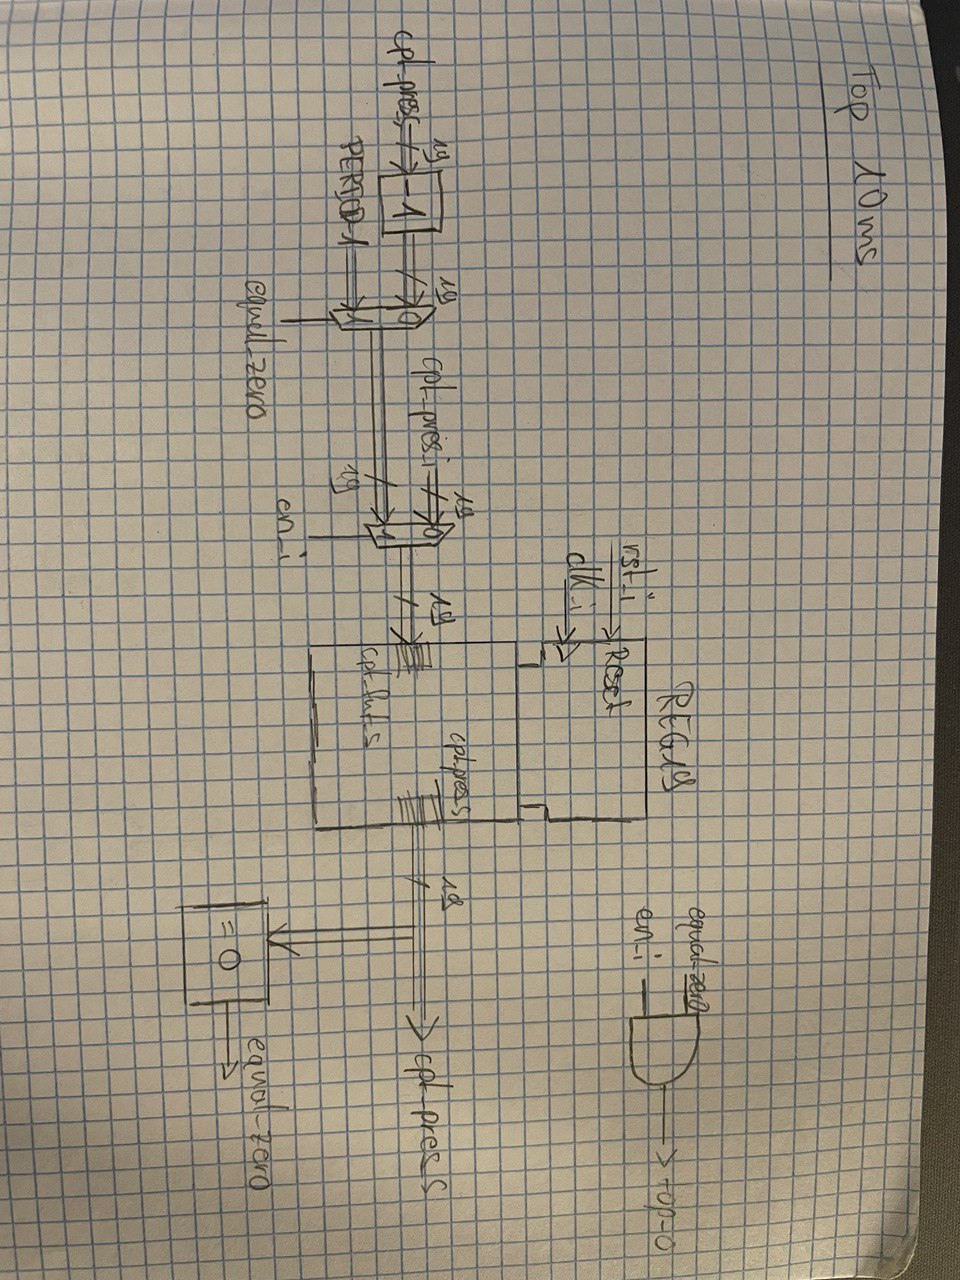 Top 10ms
REG19
equal_zero
en_i
top_o
rst_i
Reset
clk_i
cpt_pres_s
19
-1
19
0
PERIOD-1
1
equal_zero
cpt_pres_i
19
0
19
1
en_i
19
cpt_fut_s
cpt_pres_s
19
cpt_pres_s
= 0
equal_zero